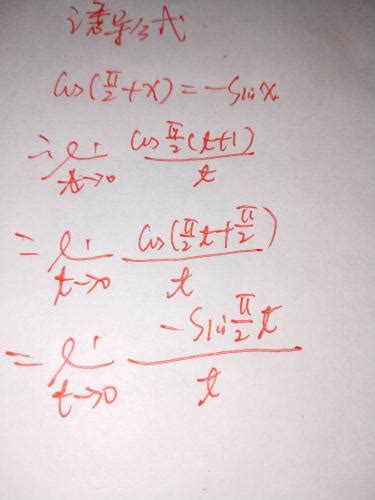 诱导公式
cos(π/2+x)=-sinx.
∴ li t→0 cos π/2(t+1)/t
= li t→0 cos(π/2 t+π/2)/t
= li t→0 -sin π/2 t/t